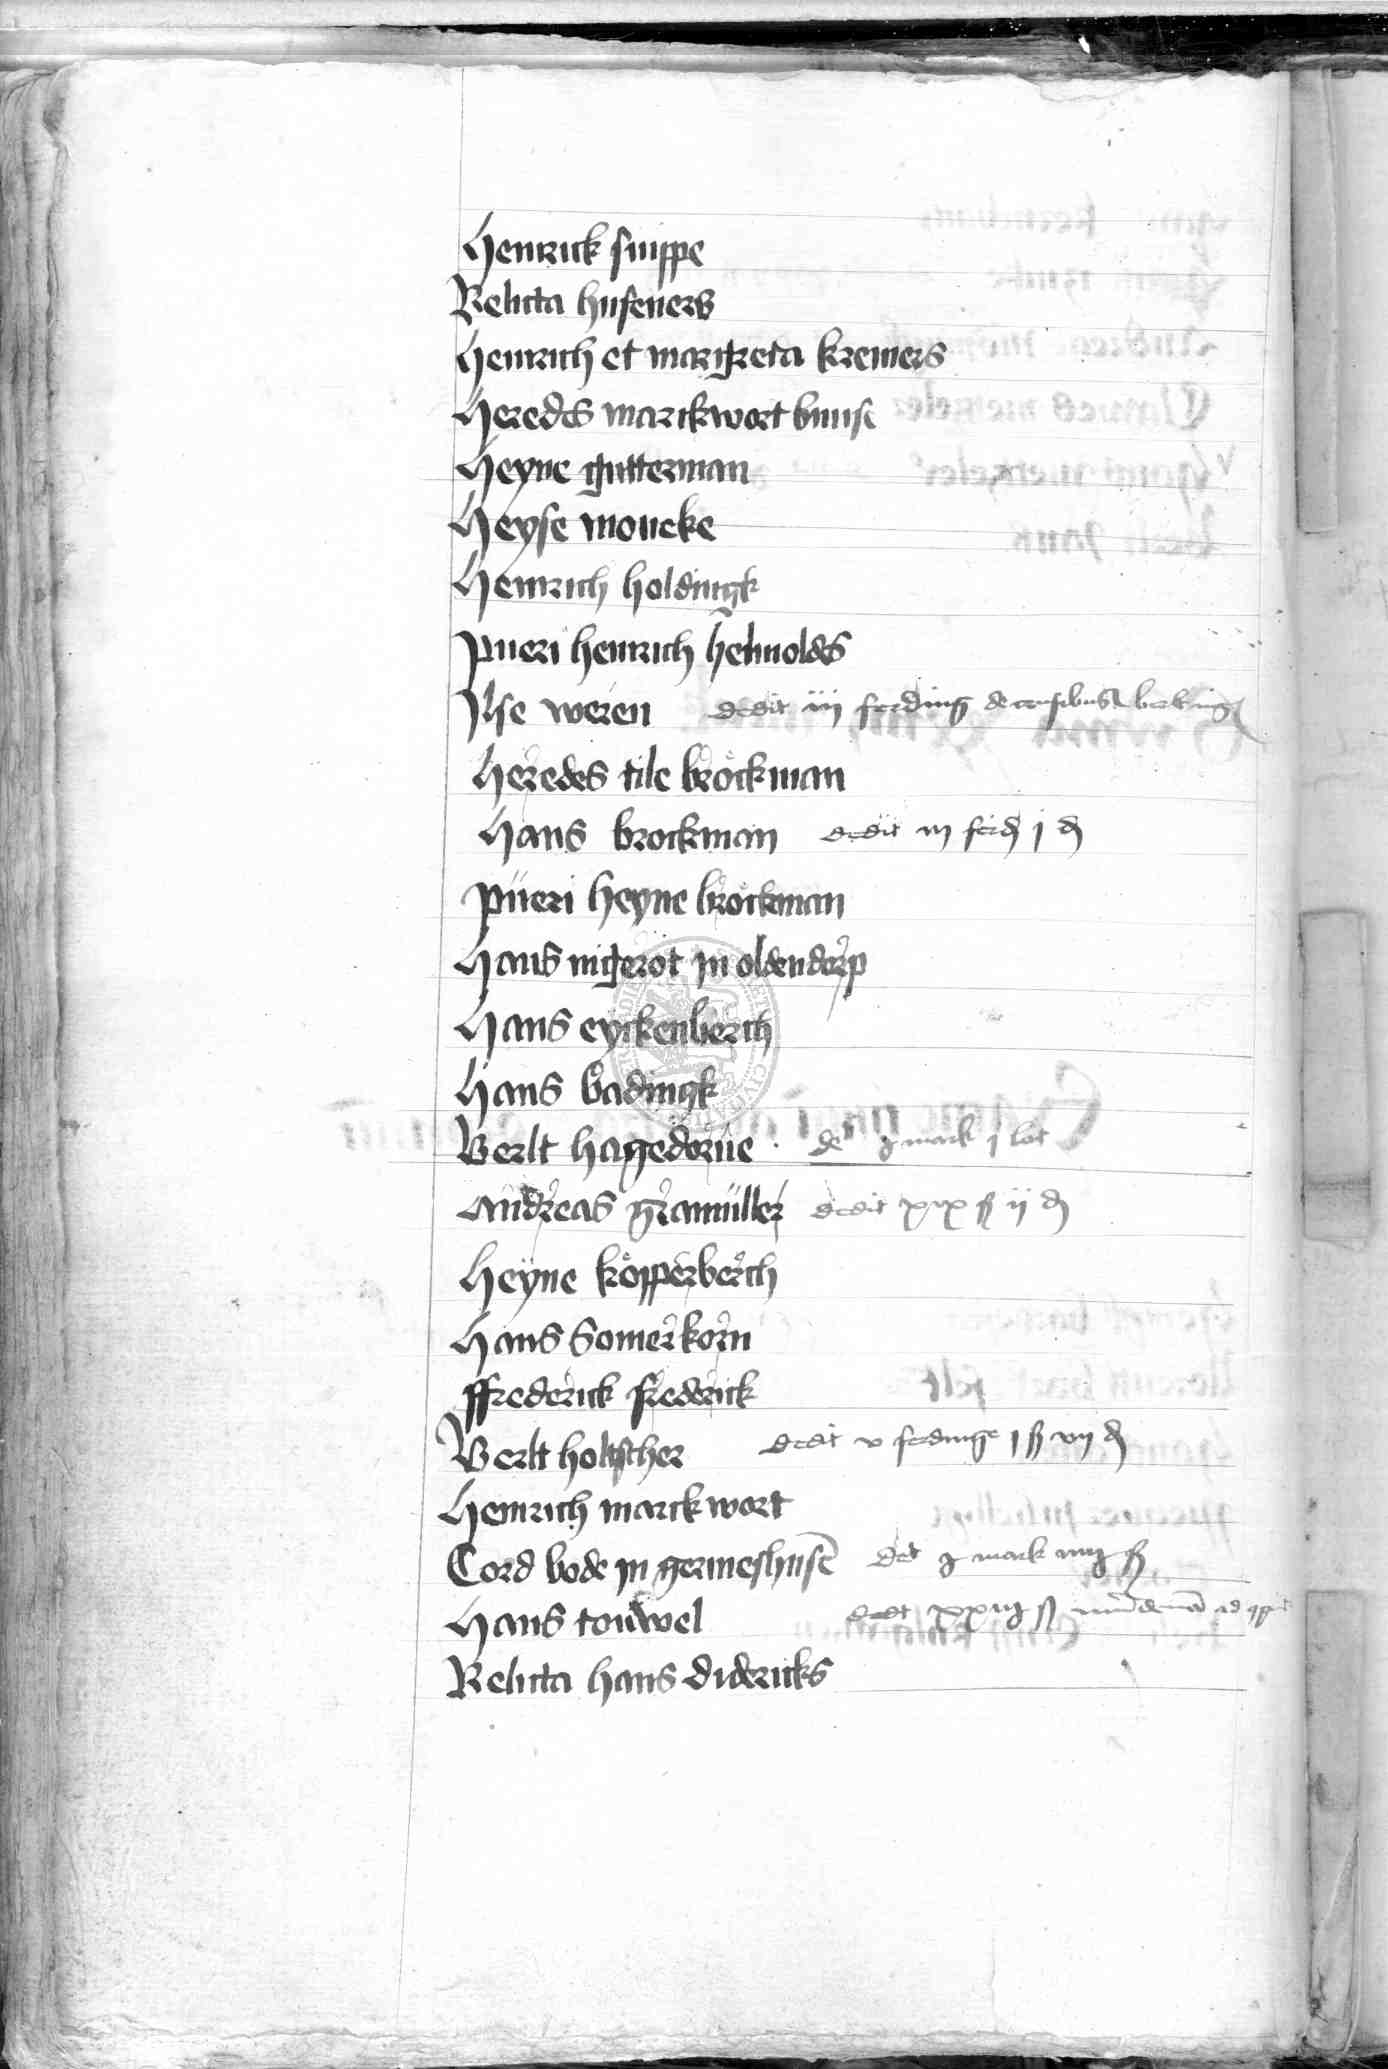 Henrick snippe
Relicta huseners
Henrich et margreta kremers
Heredes marckwort bunse
Heyne gutterman
Heyse moneke
Henrich holdingk
Pueri henrich helmoldes
Ilse weren dedit iij ferding de censibus
Heredes tile brockman
Hans brockman dedit iij ferd j d
Pueri heyne brockman
Hans nigerot in oldendorp
Hans eyckenberch
Hans badingk
Berlt hagedorne ded mark j lot
Andreas gramuller dedit xix ß ij d
Heyne kopperberch
Hans Somerkorn
ffrederick frederick
Berlt holtscher dedit v ferdinge j ß vij d
Henrich marckwort
Cord bode in germeshusē ded mark iiij ß
Hans touwel dedit xxiij ß
Relicta hans didericks